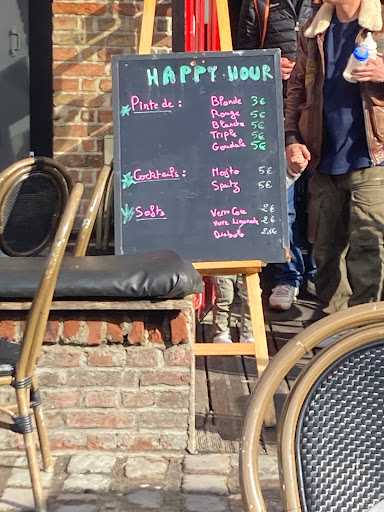 HAPPY HOUR
Pinte de : Blonde 3€
Rouge 5€
Blanche 5€
Triple 5€
Goudale 5€
Cocktails : Mojito 5€
Spritz 5€
Softs Verre Coca 2€
Verre Limonade 2€
Diabolo